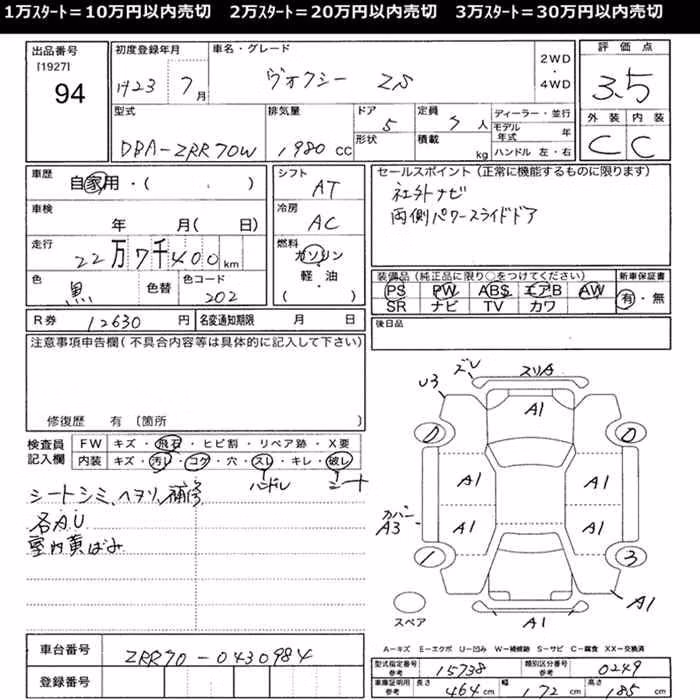 1万スタート=10万円以内売切　2万スタート=20万円以内売切　3万スタート=30万円以内売切
出品番号
[1927]
94
初度登録年月
H23 7月
車名・グレード
ヴォクシー ZS
2WD
・
4WD
評価点
3.5
外装 内装
C C
型式
DBA-ZRR70W
排気量
1980 cc
ドア
5
形状
定員
人
積載
kg
ディーラー・並行
モデル年式 年
ハンドル 左・右
車歴
自家用・( )
車検
年 月( 日)
走行
22万7千400km
色
黒
色替
色コード
202
シフト
AT
冷房
AC
燃料
ガソリン
軽・油
( )
セールスポイント(正常に機能するものに限ります)
社外ナビ
両側パワースライドドア
装備品(純正品に限り○をつけてください)
PS PW ABS エアB AW
SR ナビ TV カワ
新車保証書
有・無
R券 12630円
名変通知期限 月 日
後日品
注意事項申告欄(不具合内容等は具体的に記入して下さい)
修復歴 有 〔箇所
検査員
記入欄
FW キズ・飛石・ヒビ割・リペア跡・X要
内装 キズ・汚レ・コゲ・穴・スレ・キレ・破レ
ハンドル
シート
シートシミ、ヘタリ、補修
各AU
室内黄ばみ
U3
ズレ
スリA
A1
A1
A1
カバー
A3
A1
A1
1
3
A1
A1
スペア
A=キズ E=エクボ U=凹み W=補修跡 S=サビ C=腐食 XX=交換済
車台番号
ZRR70-0430984
登録番号
型式指定番号
参考
15738
類別区分番号
参考
0249
車庫証明用
参考
長さ
464 cm
幅
172 cm
高さ
185 cm